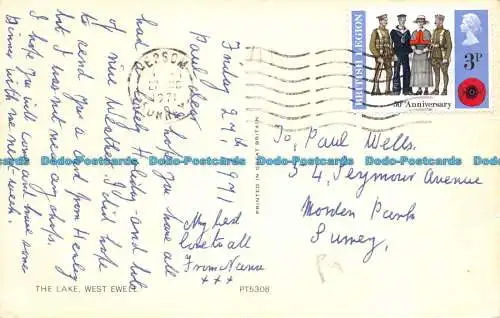 Friday 27th 1971
Paul dear, I hope you have all
had a lovely Holiday - and lots
of nice Weather. I did hope
to send you a card from Henley
but I was not near any shops.
I hope you will come and have some
Dinner with me next week.
My best
love to all
From Nanna
x x x
THE LAKE, WEST EWELL
PT5308
PRINTED IN GREAT BRITAIN
EPSOM
SURREY
BRITISH LEGION
50th Anniversary
3P
To, Paul Wells.
54, Seymour Avenue
Morden Park
Surrey.
Dodo-Postcards Dodo-Postcards Dodo-Postcards Dodo-Postcards Dodo-Postcards